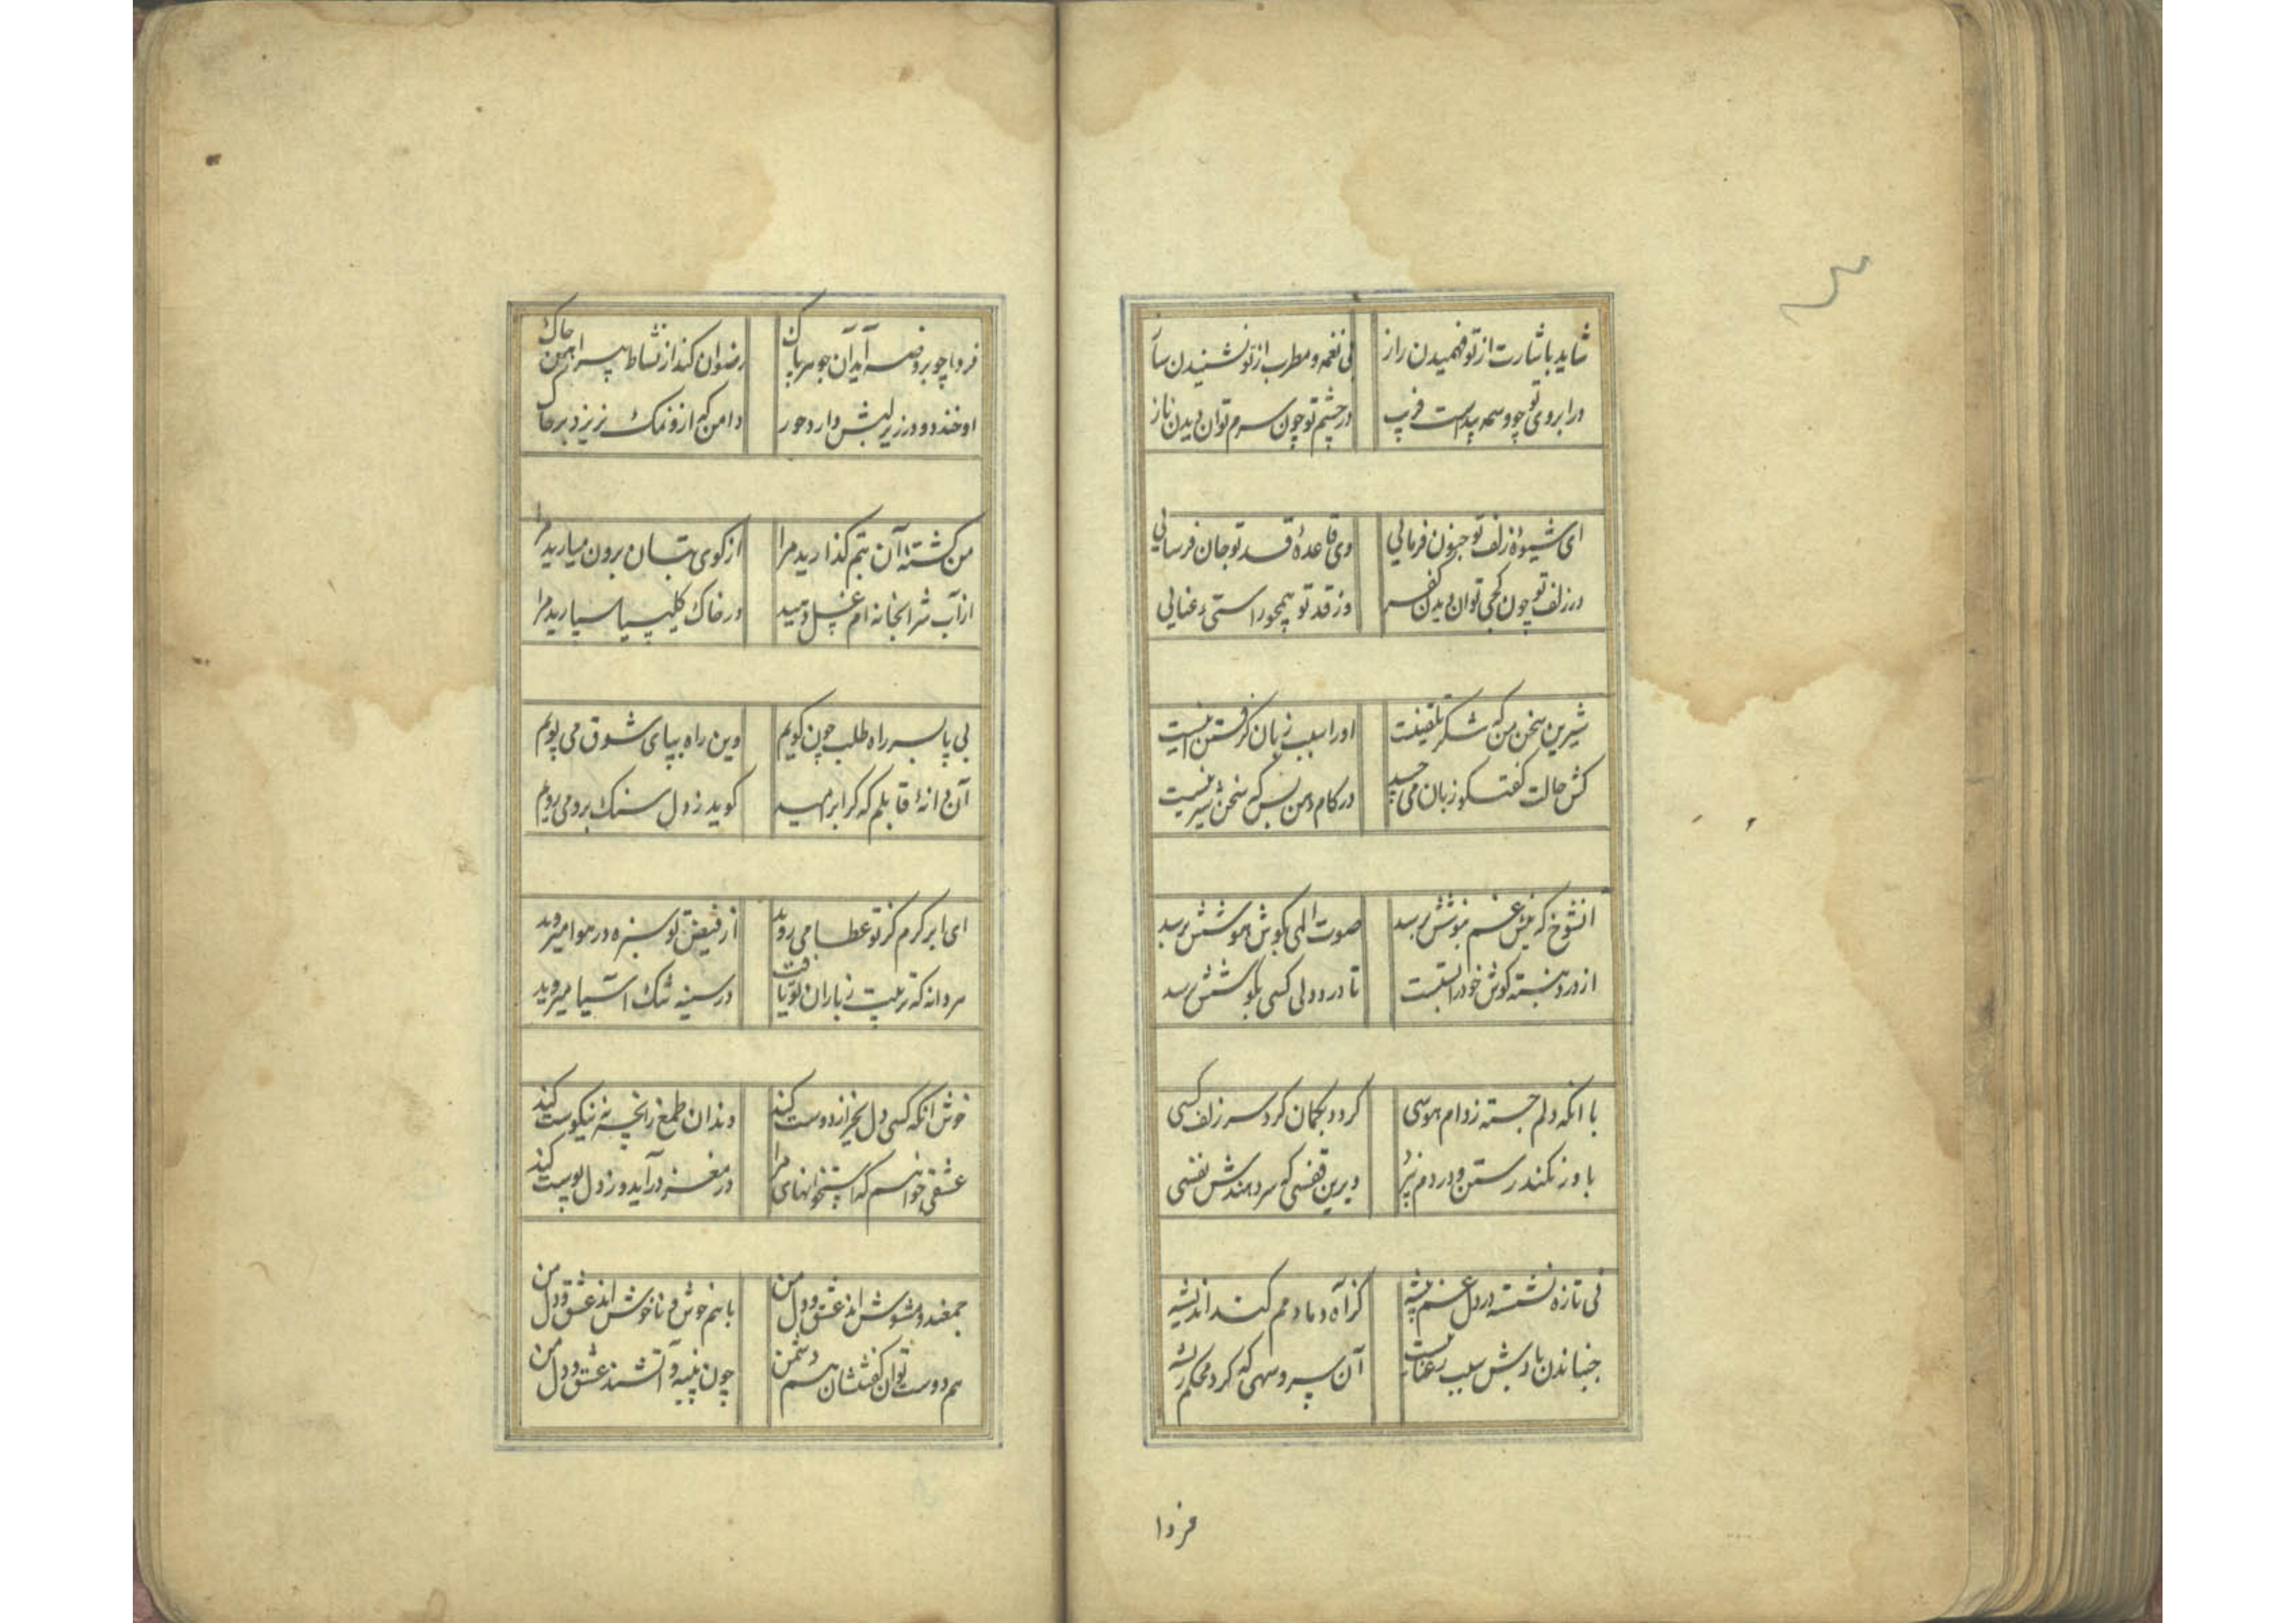 شاید باشارت از تو فهمیدن راز	بی نغمه و مطرب از تو نشنیدن ساز
در ابروی تو چو وسمه پیداست فریب	در چشم تو چون سرمه توان دیدن ناز
ای شیوهٔ زلف تو جنون فرمایی	وی قاعدهٔ قد تو جان فرسایی
در زلف تو چون کجی توان دیدن کفر	وز قد تو همچو راستی رعنایی
شیرین سخن من که شکر تلقینست	او را سبب زبان گرفتن اینست
کش حالت گفتگو زبان می‌چسبد	در کام و دهن بس که سخن شیرینست
انشوخ که نیش غم بنوشش نرسد	صوت المی بگوش هوشش نرسد
از درد نبسته گوش خود را بسته است	تا درد دلی کسی بگوشش نرسد
با آنکه دلم جسته ز دام هوسی	گردد بگمان گرد سر زلف کسی
باور نکند رستن و در دم نپرد	دیرین قفسی که سر دهندش نفسی
نی تازه نشسته در دل غم پیشه	کز آه دمادمم کند اندیشه
جنباندن بادش سبب رعناییست	آن سرو سهی که کرد محکم ریشه
فردا
فردا چو بروضه آید آن جوهر پاک	رضوان کند از نشاط پیراهن چاک
او خندد و در زیر لبش دارد حور	دامن که ازو نمک نریزد بر خاک
من کشتهٔ آن بتم گذارید مرا	از کوی بتان برون میارید مرا
از آب شرابخانه‌ام غسل دهید	در خاک کلیسیا سپارید مرا
بی پا بسر راه طلب چون گویم	وین راه بپای شوق می پویم
آن دانهٔ قابلم که گر ابر امید	گوید ز دل سنگ برو می رویم
ای ابر کرم کز تو عطا می روید	از فیض تو سبزه در هوا میروید
هر دانه که تربیت ز باران تو یافت	در سینه سنگ آسیا میروید
خوش آنکه کسی دل بخبر از دوست کند	دندان طمع ز آنچه نه نیکوست کند
عشقی خواهم که استخوانهای مرا	در مغز درآید و ز دل پوست کند
جمعند و مشوش اند عشق و دل من	با هم خوش و ناخوش اند عشق و دل من
هم دوست توان گفتشان هم دشمن	چون پنبه و آتشند عشق و دل من